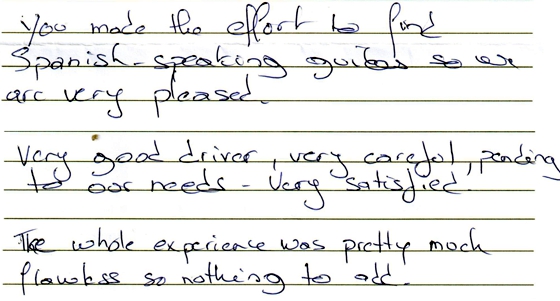 You made the effort to find
Spanish-speaking guides so we
are very pleased.
Very good driver, very careful, pending
to our needs - Very satisfied.
The whole experience was pretty much
flawless so nothing to add.